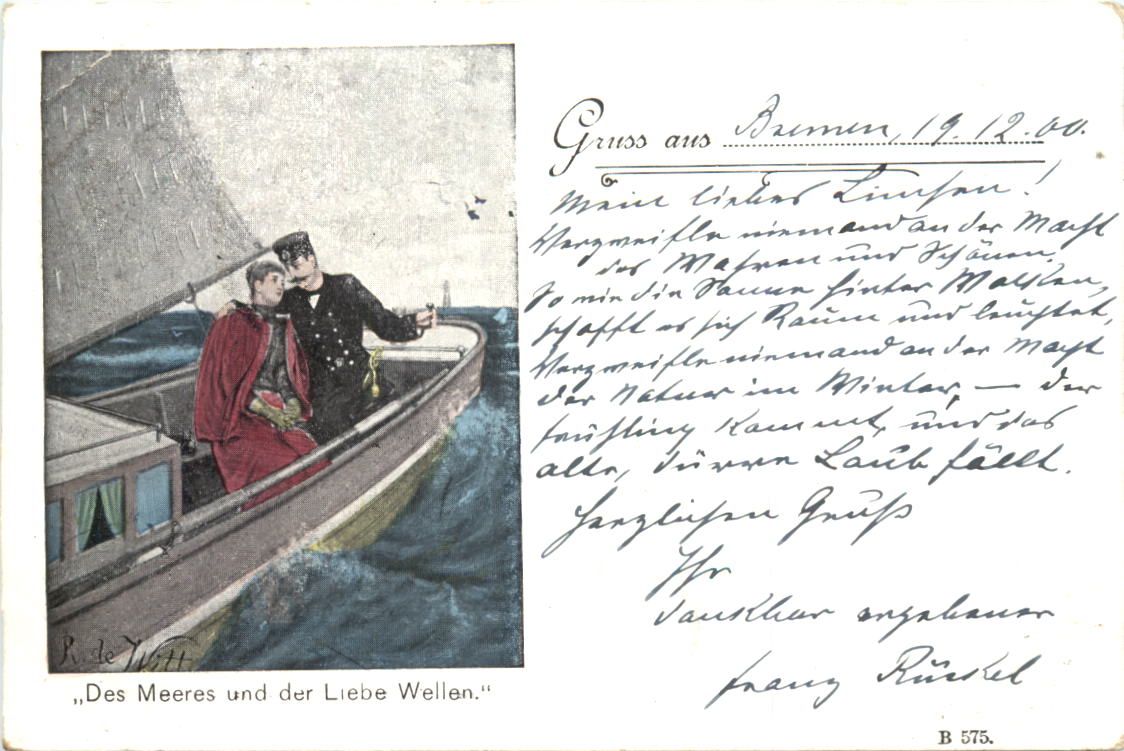 Gruss aus Bremen, 19. 12. 00.
Mein liebes Linchen!
Verzweifle niemand an der Macht
des Wahren und Schönen.
So wie die Sonne hinter Wolken,
schafft es sich Raum und leuchtet,
Verzweifle niemand an der Macht
der Natur im Winter, — der
Frühling kommt, und das
alte, dürre Laub fällt.
Herzlichen Gruß
Ihr
dankbar ergebener
Franz
R. de Witt
„Des Meeres und der Liebe Wellen."
B 575.